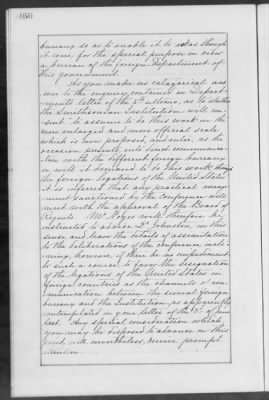 460
bureau, so as to enable it to act as though
it were, for the special purpose in view
a bureau of the foreign Department of
this government.
As you make no categorical ans-
wer to the enquiry contained in Depart-
ment's letter of the 5th ultimo, as to whether
the Smithsonian Institution will con-
sent to assume to do this work on the
more enlarged and more official scale
which is now proposed, and enter, as the
occasion presents, into direct communica-
tion with the different foreign bureaus
or will it be desired to do this work through
the foreign legations of the United States
it is inferred that any practical arrange-
ment sanctioned by the Conference will
meet with the approval of the Board of
Regents. Mr. Noyes will therefore be
instructed to address Dr. Johnston, in this
sense, and leave the details of assimilation
to the deliberations of the conference, deter-
mining, however, if there be no impediment
to such a course, to favor the designation
of the legations of the United States in
foreign countries as the channels of com-
munication between the several foreign
bureaus and the Institution, as apparently
contemplated in your letter of the 13th of June
last. Any special consideration which
you may be disposed to advance on this
point will, nevertheless, receive prompt
attention.